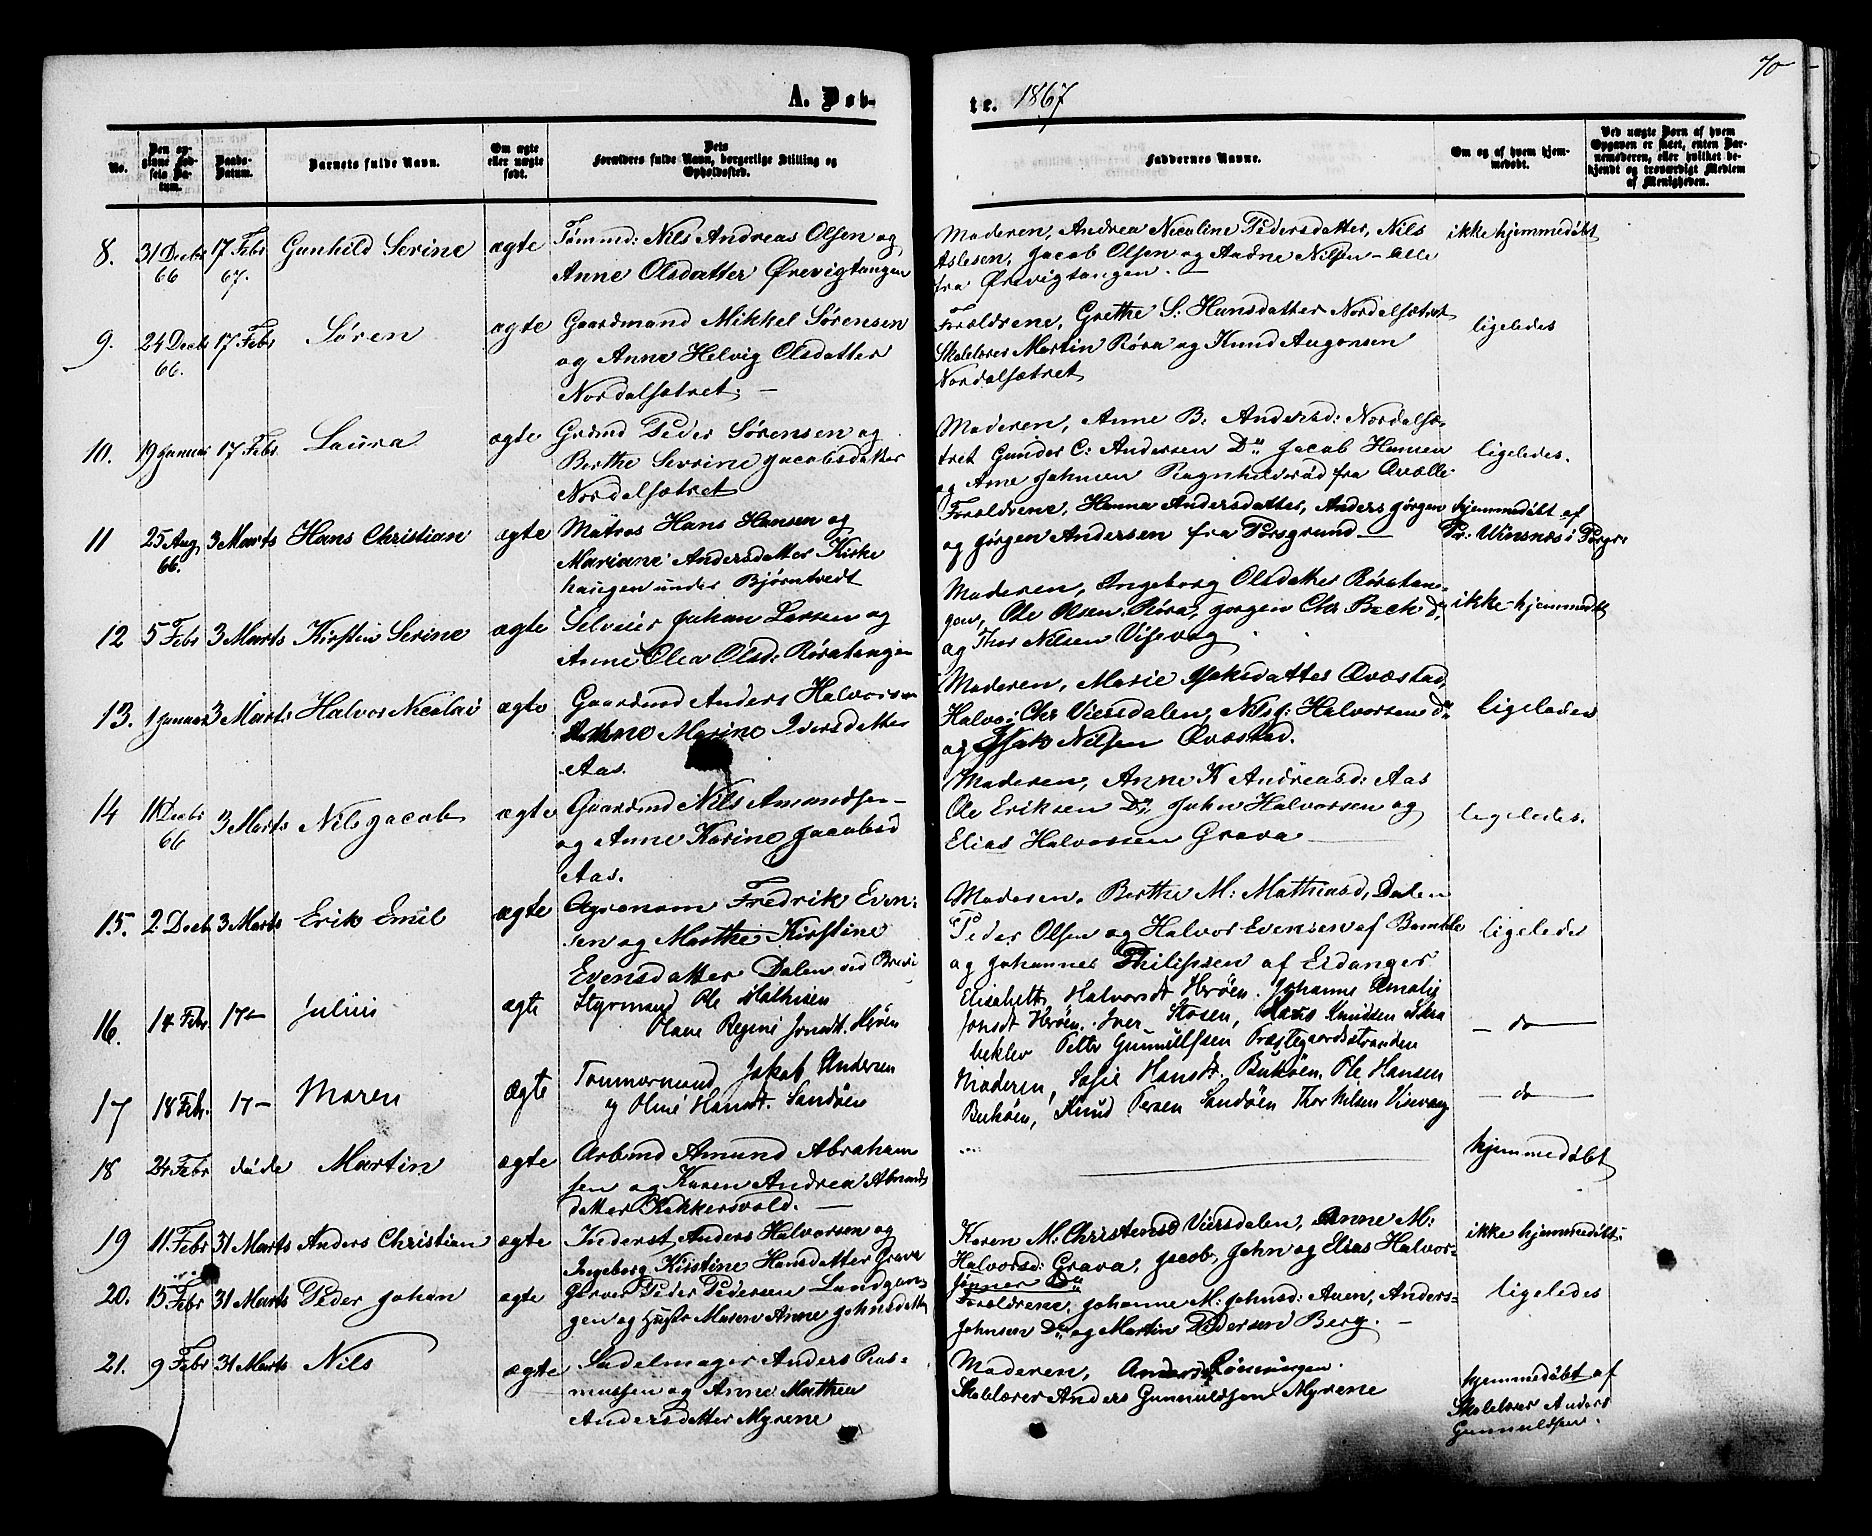 70
A. Døb-
te. 1867
No.
Den opgivne Fødsels Datum.
Daabs-Datum.
Barnets fulde Navn.
Om ægte eller uægte født.
Dets Forældres fulde Navn, borgerlige Stilling og Opholdssted.
Faddernes Navne.
Om og af hvem hjemmedøbt.
Ved uægte Børn af hvem Opgaven er skeet, enten Barnemoderen, eller hvilket bekjendt og troværdigt Medlem af Menigheden.
8. 31 Decbr 66 17 Febr 67. Gunhild Serine ægte
Tømmd: Nils Andreas Olsen og
Anne Olsdatter Ørevigtangen
Moderen, Andrea Nicoline Pedersdatter, Nils
Aslesen, Jacob Olsen og Andne Nilsen - alle
fra Ørevigtangen. -
ikke hjemmedøbt
9. 24 Decbr 66. 17 Febr Søren ægte
Gaardmand Mikkel Sørensen
og Anne Helvig Olsdatter
Nordalsætret. -
Forældrene, Grethe S: Hansdatter Nordalsætret
Skolelærer Martin Røra og Knud Augonsen
Nordalsætret
ligeledes
10. 19 Januar 17 Febr Laura ægte
Grdmd Peder Sørensen og
Berthe Sevrine Jacobsdatter
Nordalsætret
Moderen, Anne B: Andersd: Nordalsæ-
tret Gunder C: Andersen Do Jacob Hansen
og Arne Johnsen Ragnhildsrød fra Qvælle
ligeledes.
11 25 Aug 66. 3 Marts Hans Christian ægte
Matros Hans Hansen og
Mariane Andersdatter Kirke
haugen under Bjørntvedt
Forældrene, Hanna Andersdatter, Anders Jørgen
og Jørgen Andersen fra Porsgrund -
hjemmedøbt af
Pr: Winsnæs i Porsgr
12 5 Febr 3 Marts Kirstin Serine ægte
Selveier Johan Larsen og
Anne Olea Olsd: Røratangen
Moderen, Ingeborg Olsdatter Røratan-
gen, Ole Olsen Røra, Jørgen Chr Bech do
og Thor Nilsen Visevog
ikke hjemmedøbt
13. 1 Januar 3 Marts Halvor Nicolai ægte
Gaardmd Anders Halvorsen
Anne Marine Iversdatter
Aas.
Moderen, Marie Isaksdatter Qvæstad,
Halvor Chr Viersdalen, Nils J: Halvorsen do
og Isak Nilsen Qvæstad.
ligeledes
14 11 Decbr 66 3 Marts Nils Jacob ægte
Gaardmd Nils Amundsen -
og Anne Karine Jacobsd
Aas.
Moderen, Anne K Andreasd: Aas
Ole Eriksen Do, John Halvorsen og
Elias Halvorsen Grava
ligeledes.
15. 2 Decb. 3 Marts Erik Emil ægte
Agronom Fredrik Even-
sen og Marthe Kirstine
Evensdatter Dalen ved Brevi
Moderen. Berthe M: Mathiasd, Dalen
Peder Olsen og Halvor Evensen af Bamble
og Johannes Philipsen af Eidanger
ligeledes
16. 14 Febr 17- Julius ægte
Styrmand Ole Mathisen
Olava Regine Jonsdt. Herøen
Elisabeth Halvorsdt Herøen. Johanne Amalie
Jonsdt Herøen. Iver Stosen, Hans Knudsen
beklev Petter Gunnulfsen Præstegaardsstranden
- do -
17 18 Febr. 17- Maren ægte
Tømmermand Jakob Andersen
og Oline Hansdt. Sandøen
Moderen, Sofie Hansdt. Bukøen. Ole Hansen
Bukøen, Knud Persen Sandøen Thor Nilsen Visevaag
- do -
18 24 Febr døde Martin ægte
Arbmd Amund Abraham
sen og Karen Andrea Amunds
datter Blekkersvold. -
hjemmedøbt
19 11 Febr 31 Marts Anders Christian ægte
Inderst Anders Halvorsen og
Ingeborg Kirstine Hansdatter Grava
Karen M: Christensd Viersdalen, Anne M:
Halvorsd: Grava, Jacob, John og Elias Halvor-
sønner Do
ikke hjemmedøbt
20. 15 Febr 31 Marts Peder Johan ægte
Garver Peder Pedersen Lundgan-
gen og Hustr Maren Anne Johnsdatter
Forældrene, Johanne M: Johnsd: Auen, Anders
Johnsen Do og Martin Pedersen Berg. -
ligeledes
21. 9 Febr 31 Marts Nils ægte
Sadelmager Anders Ras-
mussen og Anne Marthea
Andersdatter Myrene
Moderen, Anders Rønningen.
Skolelærer Anders Gunnuldsen Myrene
hjemmedøbt af
Skolelærer Anders
Gunnuldsen.